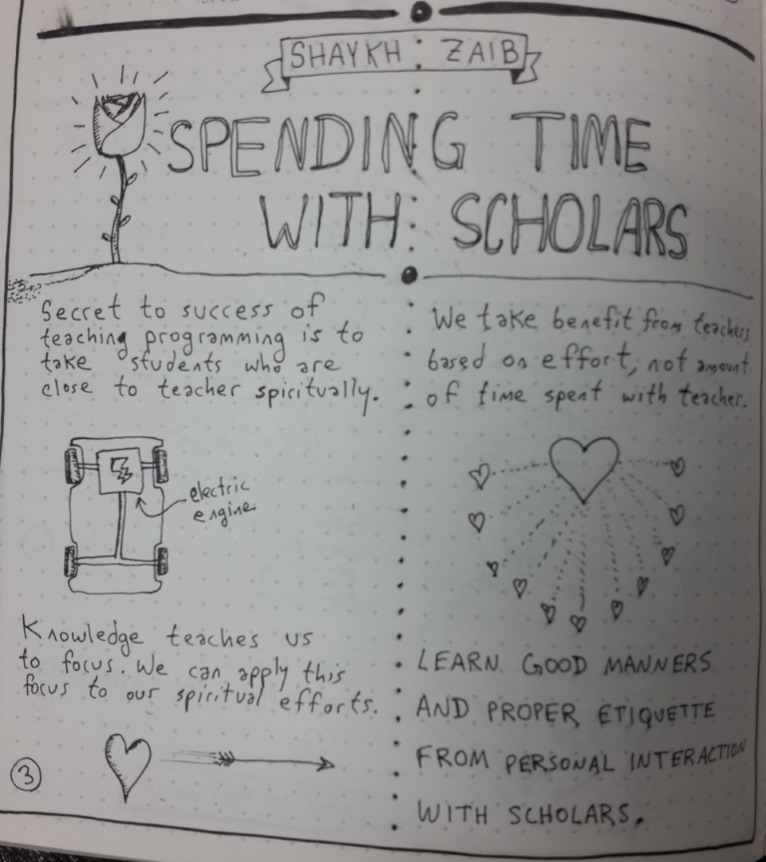 SHAYKH ZAIB
SPENDING TIME
WITH SCHOLARS
Secret to success of
teaching programming is to
take students who are
close to teacher spiritually.
electric
engine
Knowledge teaches us
to focus. We can apply this
focus to our spiritual efforts.
3
We take benefit from teachers
based on effort, not amount
of time spent with teacher.
LEARN GOOD MANNERS
AND PROPER ETIQUETTE
FROM PERSONAL INTERACTION
WITH SCHOLARS.